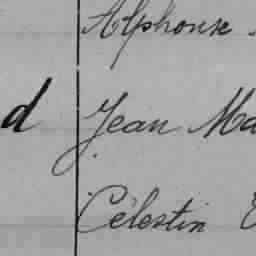 Alphonse
d Jean Ma
Célestin